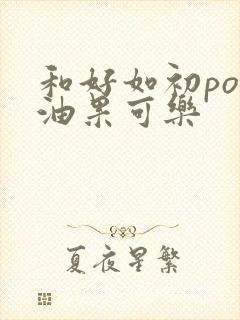 和好如初po
油果可樂
夏夜星繁